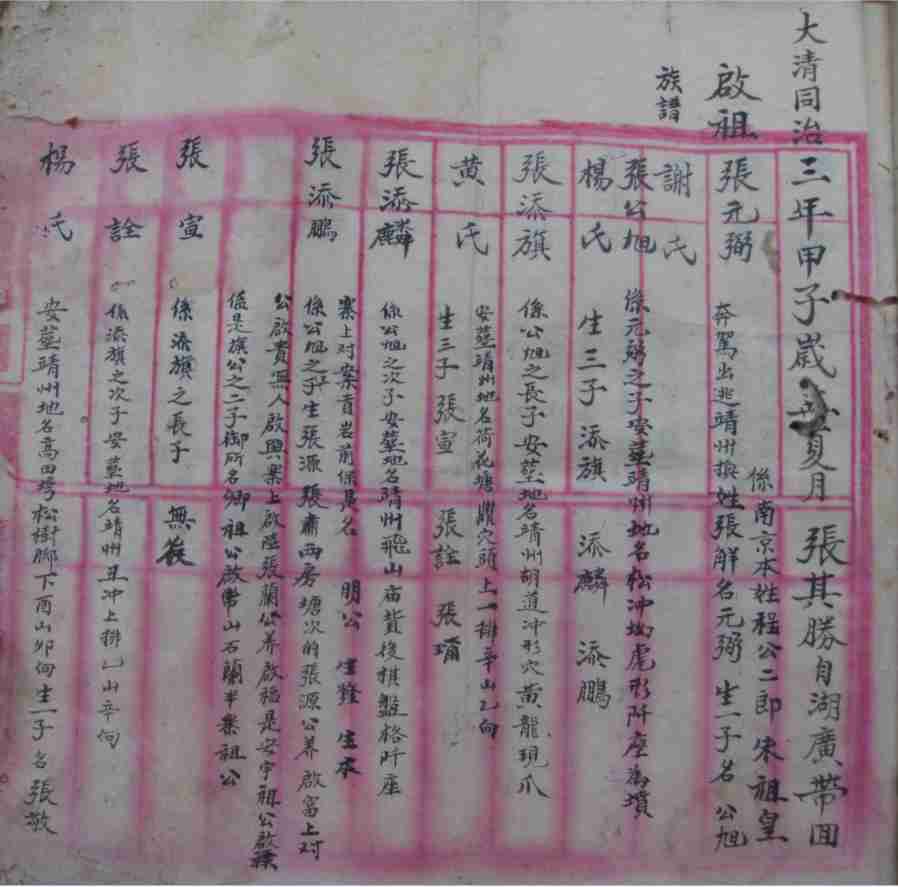 大清同治三年甲子歲夏月 張其勝自湖廣帶回
啟祖
族譜
係南京本姓程公二郎朱祖皇
張元弼 奔駕出逃靖州換姓張解名元弼 生一子名 公旭
謝氏
張公旭 係元弼之子安塟靖州地名松冲坳虎形阡座為墳
楊氏 生三子添旗 添麟 添鵬
張添旗 係公旭之長子安塟地名靖州胡道冲形穴黄龍現爪
安塟靖州地名荷花塘鼎穴頭上一排辛山乙向
黄氏 生三子張宣 張詮 張瑃
張添麟 係公旭之次子安塟地名靖州飛山庙背後棋盤格阡座
寨上对案首岩前保是名 明公 生 生
張添鵬 係公旭之子生張源張肅两房塘次的張源公养啟富上对
公啟貴無人啟興寨上啟 張蘭公养啟福是安宇祖公啟
係是旗公之二子御所名卿祖公啟 山石蘭半寨祖公
張宣 係添旗之長子 無後
張詮 係添旗之次子安塟地名靖州丑冲上排乙山辛向
楊氏 安塟靖州地名高田塝松樹脚下酉山卯向生一子名張敬